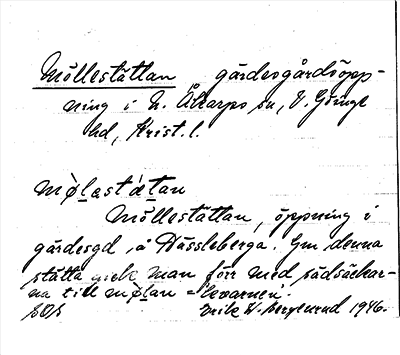 Möllestättan, gärdesgårdsöpp-
ning i N. Åkarps sn, V. Göinge
hd, Krist. l.
mø̀lastǽtan
Möllestättan, öppning i
gärdesgd å Hässleberga. Gm denna
stätta gick man förr med sädsäckar-
na till mølan = 'kvarnen'.
SOS
1946.